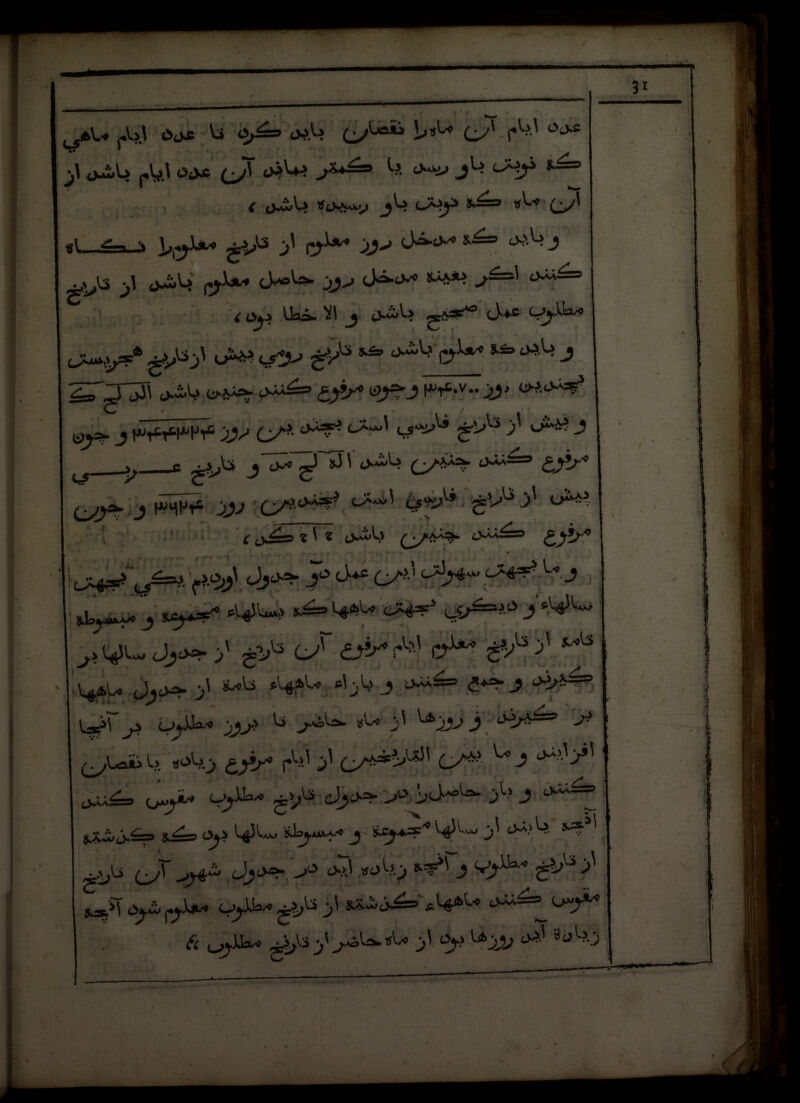 31
عدد ايام آن ماه‌را نقصان بايد كرد تا عدد ايام ماهي
كه نوبت باو رسد يا كمتر بماند آن عدد ايام باشد از
آن ماه كه نوبت باو رسيده باشد
و بايد كه مدخل روز معلوم از تاريخ معلوم‌را نكاه
كنند اكر بعينه مدخل روز حاصل معلوم باشد از تاريخ
مطلوب عمل صحيح باشد و الا خطا بود
و بايد كه معلوم باشد كه تاريخ رومي پيش ازتاريخ هجريست
بچندين روز ۳۴۰۷۰۰ و چون مرفوع كنند چنين باشد
و پيش از تاريخ فارسي است بچندين روز ۳۴۴۳۲۴ و چون
مرفوع كنند چنين باشد و تاريخ عربي
پيش از تاريخ فارسي است بچندين روز ۳۶۲۴ و چون
مرفوع كنند چنين باشد
و ما بجهت سهولت اين عمل دو جدول اورديم يكي بجهت
سالها و ديكري بجهت ماهها كه بسالهاء مجموعه و مبسوطه
تامه از تاريخ معلوم ايام مرفوع آن تاريخ از جدول سالها بر
كيرند و جمع كنند و بازاء ماههاء تامه از جدول ماهها
بر كيرند و روزها از ماه حاضر تا بروز مطلوب بر آنجا
افزايند و ما بين التاريخين از ايام مرفوع زياده يا نقصان
كنند و باز حاصل‌را در جدول تاريخ مطلوب مقوس كنند
آنچه يابند از سالها مجموعه و مبسوطه سالها بود كه كذشته
از تاريخ مطلوب و آنچه زياده آيد در جدول شهور آن تاريخ
مقوس كنند ماههاء كذشته از تاريخ مطلوب معلوم شود آنچه
زياده آيد روزها بود از ماه حاضر از تاريخ مطلوب